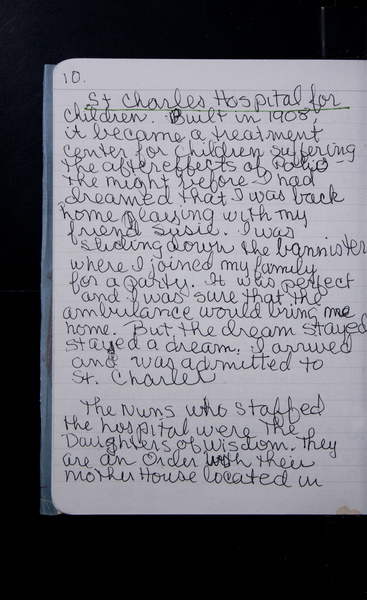 10.
St Charles Hospital for
children. Built in 1908,
it became a treatment
center for children suffering
the aftereffects of Polio -
The might before I had
dreamed that I was back
home Playing with my
friend Susie. I was
sliding down the bannister
where I joined my family
for a party. It was perfect
and I was sure that the
ambulance would bring me
home. But the dream stayed
stayed a dream. I arrived
and was admitted to
St. Charles
The Nuns who staffed
the hospital were The
Daughters of Wisdom. They
are an Order with their
mother House located in